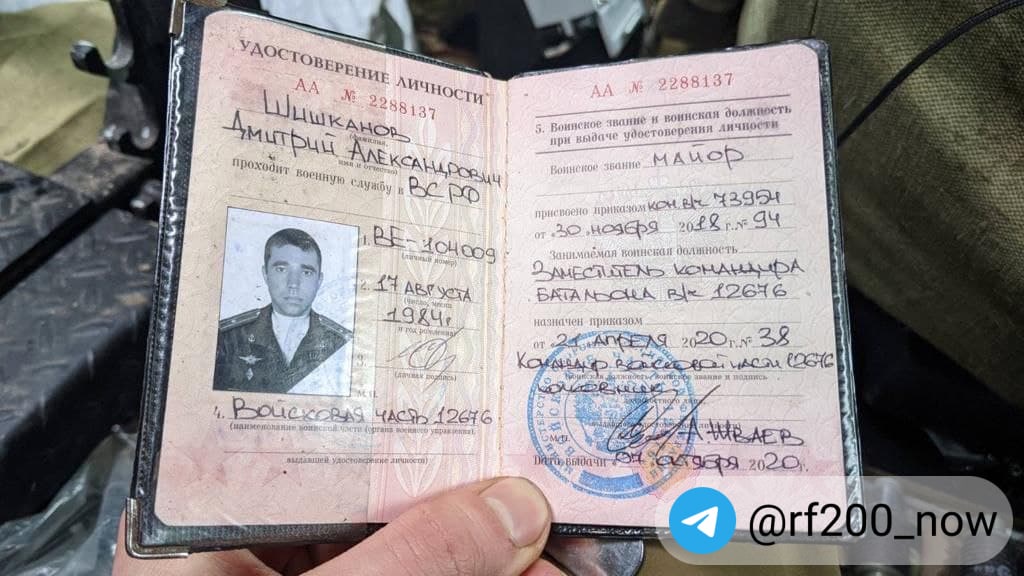 УДОСТОВЕРЕНИЕ ЛИЧНОСТИ
АА № 2288137
Шишканов
Дмитрий Александрович
имя и отчество
проходит военную службу в ВС РФ
1. ВЕ-104009
(личный номер)
2. 17 августа
(число, месяц
1984г
и год рождения)
3.
(личная подпись)
М.П.
4. Войсковая часть 12676
(наименование воинской части (органа военного управления),
выдавшей удостоверение личности)
АА № 2288137
5. Воинское звание и воинская должность
при выдаче удостоверения личности
Воинское звание майор
присвоено приказом ком. в/ч 73954
от „30„ ноября 2018 г. № 94
Занимаемая воинская должность
Заместитель командира
батальона в/ч 12676
назначен приказом
от „21„ апреля 2020 г. № 38
Командир войсковой части 12676
полковник
М.П. А. Шваев
Дата выдачи „07„ октября 2020 г.
@rf200_now